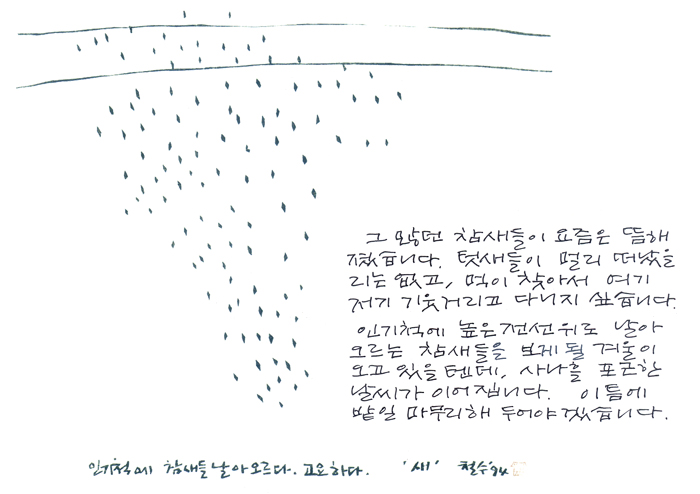 그 많던 참새들이 요즘은 뜸해
졌습니다. 텃새들이 멀리 떠났을
리는 없고, 먹이 찾아서 여기
저기 기웃거리고 다니지 싶습니다.
인기척에 높은 전선 위로 날아
오르는 참새들을 보게 될 겨울이
오고 있을 텐데, 사나흘 포근한
날씨가 이어집니다. 이 틈에
밭일 마무리해 두어야겠습니다.
인기척에 참새들 날아오르다. 고요하다. '새' 철수 '94